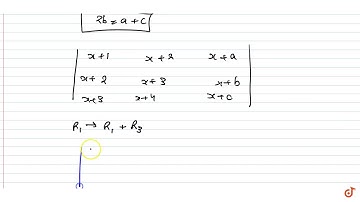 2b = a + c
| x+1 x+2 x+a |
| x+2 x+3 x+b |
| x+3 x+4 x+c |
R₁ → R₁ + R₃